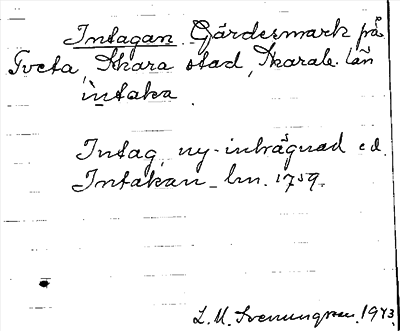 Intagan. Gärdesmark på
Tveta, Skara stad, Skarab. län
intaka.
Intag, ny-inhägnad e.d.
Intakan - lm. 1759.
L. M. Svenungsson. 1943.